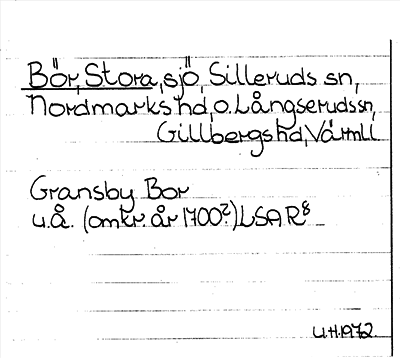 Bör, Stora, sjö, Silleruds sn,
Nordmarks hd, o. Långseruds sn,
Gillbergs hd, Värml.
Gransby Bor
u.å. (omkr. år 1700?) LSA R8
U.H. 1972